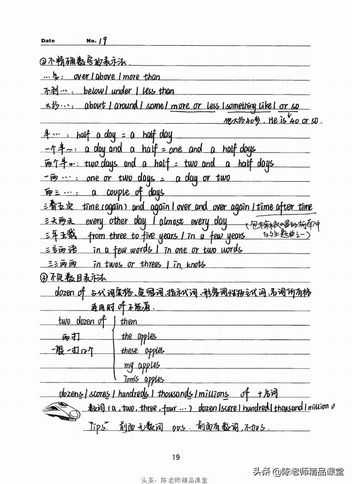 Date No. 19
②不精确数量的表示法
…多: over / above / more than
不到…: below / under / less than
大约…: about / around / some / more or less / something like / or so
他大约40岁. He is 40 or so.
半…: half a day = a half day
一个半…: a day and a half = one and a half days
两个半…: two days and a half = two and a half days
一两…: one or two days = a day or two
两三…: a couple of days
三番五次 time (again) and again / over and over again / time after time
三天两头 every other day / almost every day
三年五载 from three to five years / in a few years
三言两语 in a few words / in one or two words
三三两两 in twos or threes / in knots
③不定数目表示法
dozen of 与代词宾格、定冠词、指示代词、形容词性物主代词、名词所有格
连用时 of 不能省.
two dozen of them
两打 the apples
一般一打12个 these apples
my apples
Tom's apples
dozens / scores / hundreds / thousands / millions of + 名词
数词 (a, two, three, four …) dozen / score / hundred / thousand / million
Tips: 前面无数词 ofs. 前面有数词, 不加s.
19
头条: 陈老师精品课堂
头条 @陈老师精品课堂